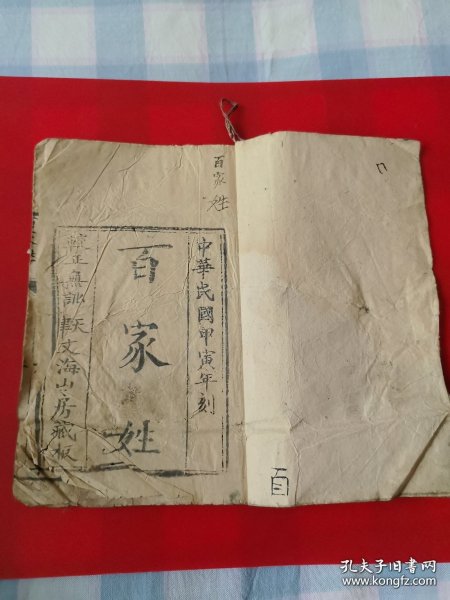 百家姓
中華民國甲寅年刻
百家姓
較正無訛
文海山房藏板
百
孔夫子旧书网
www.kongfz.com